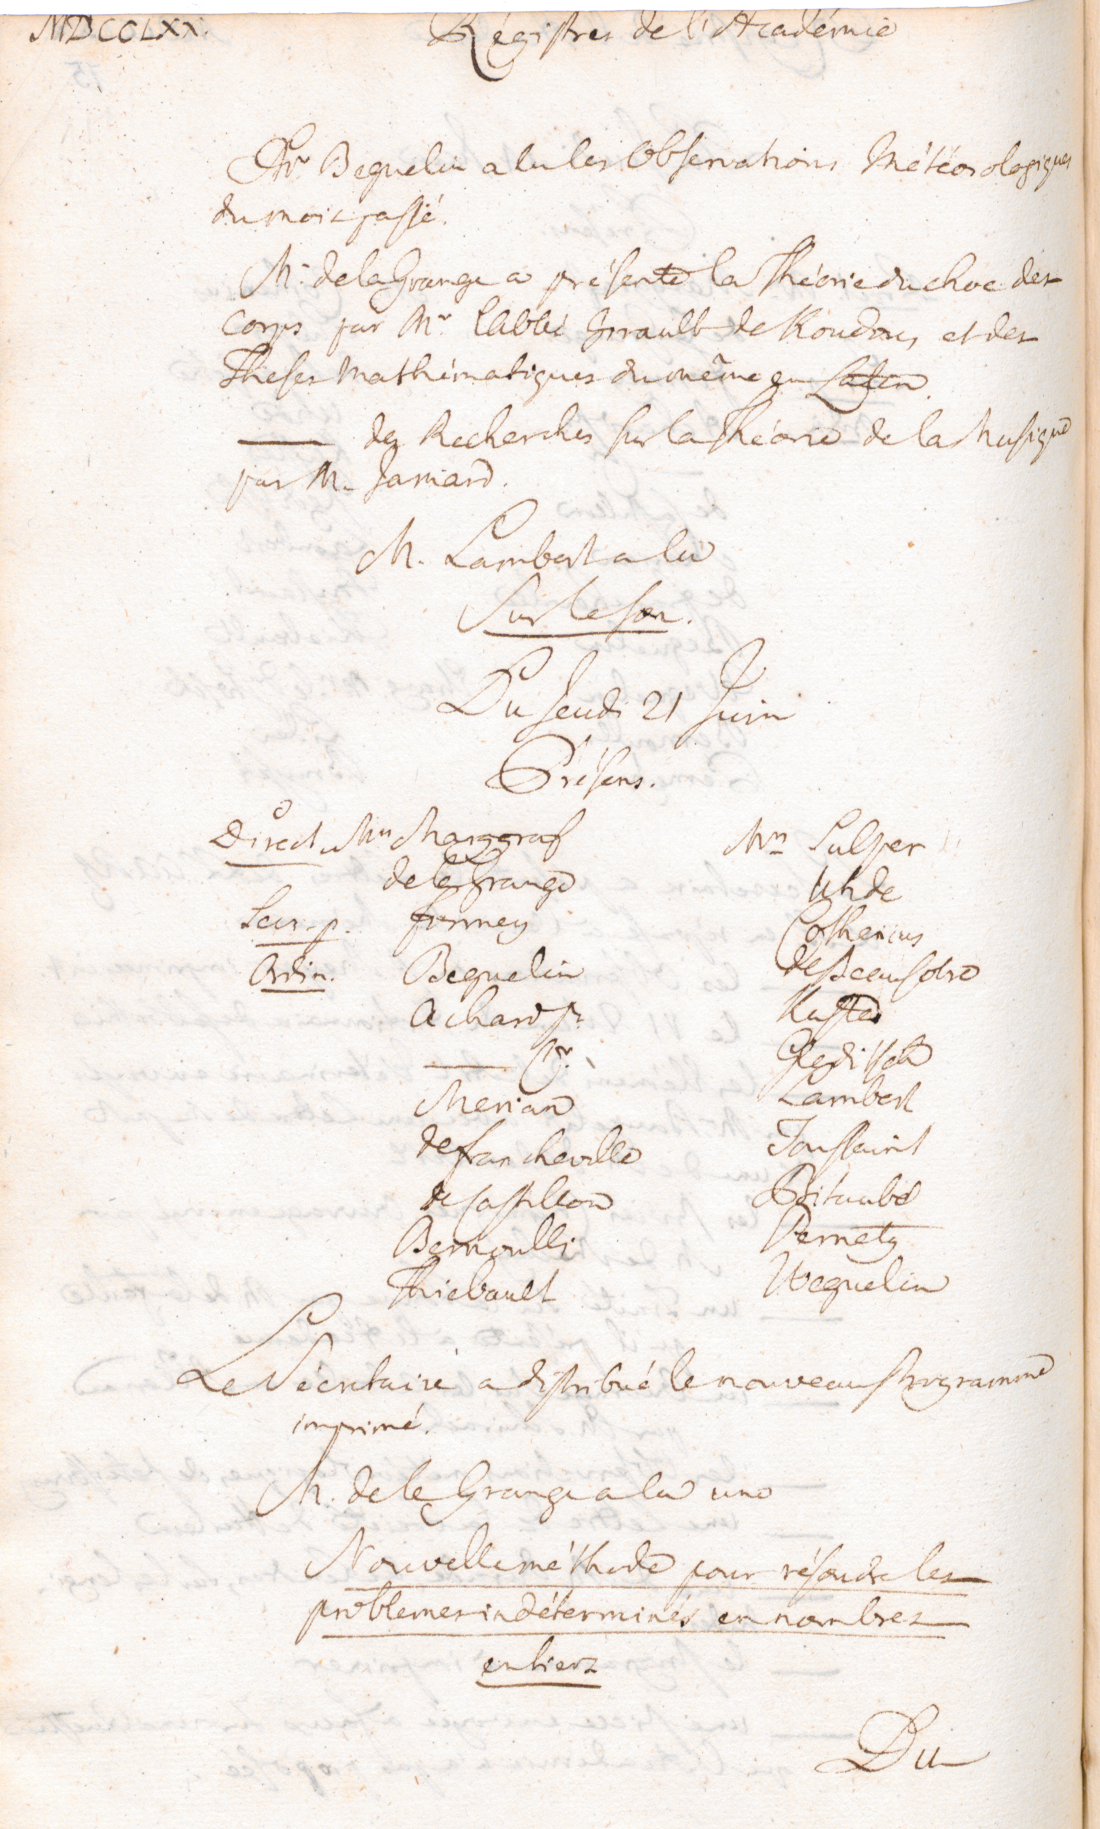 MDCCLXX.
Régistres de l'Académie
Mr Beguelin a lu les Observations Météorologiques
du mois passé.
M. de la Grange a présenté la Théorie du choc des
Corps par Mr l'Abbé de et des
Theses Mathématiques du même en Latin.
—— des Recherches sur la Théorie de la Musique
par M. Jamard.
M. Lambert a lu
Sur le son.
Du Jeudi 21 Juin
Présens.
Direct. Mrs Marggraf
de la Grange
Secr. p. Formey
Ordin. Beguelin
Achard Pr
——
Merian
de Francheville
de Castillon
Bernoulli
Thiebault
Mrs Sulzer
Uhde
Cothenius
de Beausobre
Kuster
Gleditsch
Lambert
Toussaint
Bitaubé
Pernety
Weguelin
Le Sécrétaire a distribué le nouveau Programme
imprimé.
M. de la Grange a lu une
Nouvelle méthode pour résoudre les
problemes indéterminés en nombres
entiers
Du